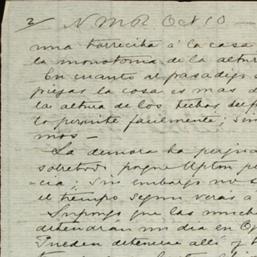 2/ N M R Oct 10 —
una torrecita á la casa
la monotonia de la altur
En cuanto al pasadizo
piezas la cosa es mas d
la altura de los techos del p
lo permite facilmente; sin
mos —
La demora ha perjud
sobretodo, porque Upton p
cia; Sin embargo no s
el tiempo segun veras a
Supongo que las much
detendran un dia en Og
Pueden detenerse allí y t